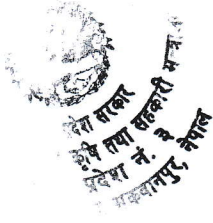 प्रदेश सरकार
कृषि तथा सहकारी
प्रदेश नं. ३
मकवानपुर, नेपाल